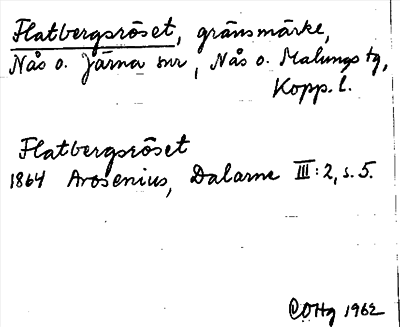 Flatbergsröset, gränsmärke,
Nås o. Järna snr, Nås o. Malungs tg,
Kopp. l.
Flatbergsröset
1864 Arosenius, Dalarne III:2, s. 5.
COHg 1962